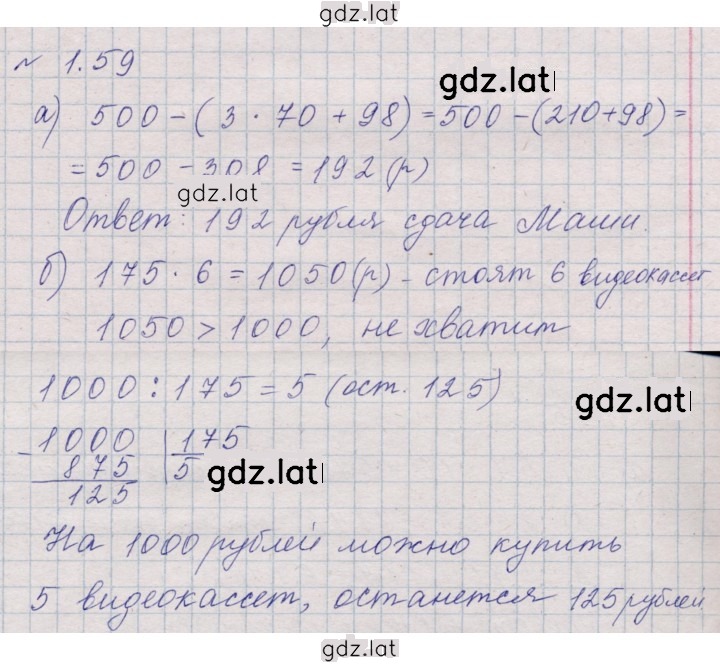 gdz.lat
№ 1.59
gdz.lat
а) 500 - (3 · 70 + 98) = 500 - (210 + 98) =
= 500 - 308 = 192 (р)
gdz.lat
Ответ: 192 рубля сдача Маши.
б) 175 · 6 = 1050 (р) - стоят 6 видеокассет
1050 > 1000, не хватит
1000 : 175 = 5 (ост. 125)
gdz.lat
- 1000 | 175
875 | 5
gdz.lat
125
На 1000 рублей можно купить
5 видеокассет, останется 125 рублей
gdz.lat